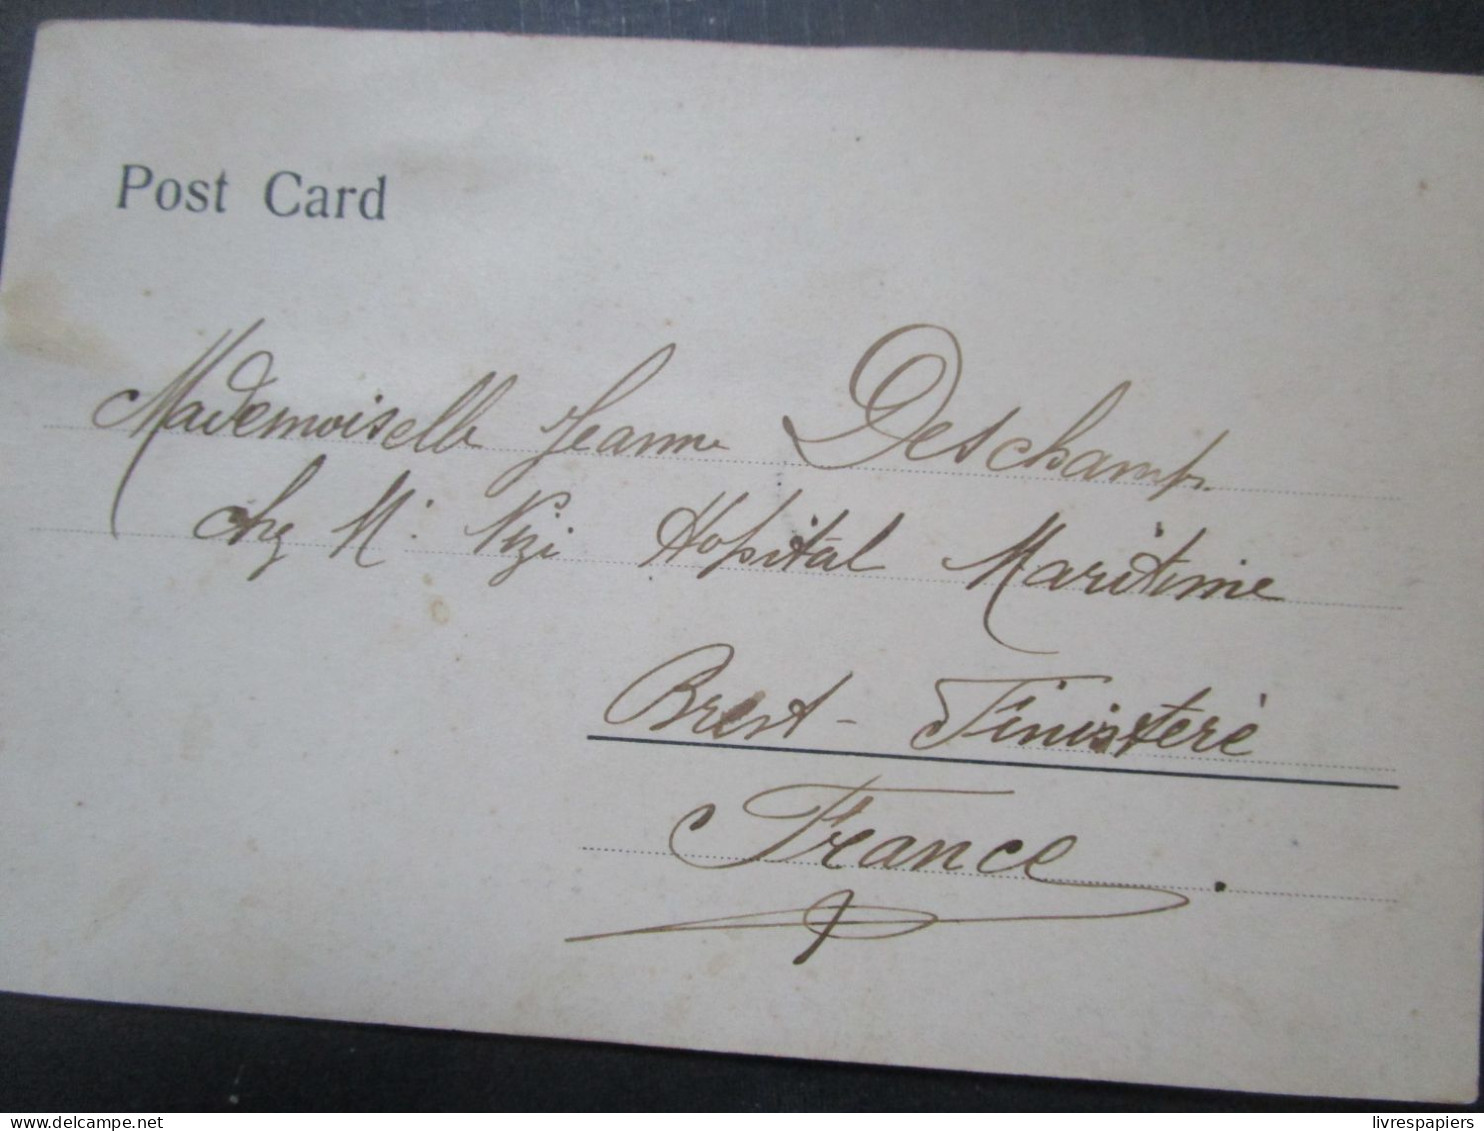 Post Card
Mademoiselle Jeanne Deschamps
chez Mr Hopital Maritime
Brest - Finisterè
France.
livrespapiers
delcampe.net